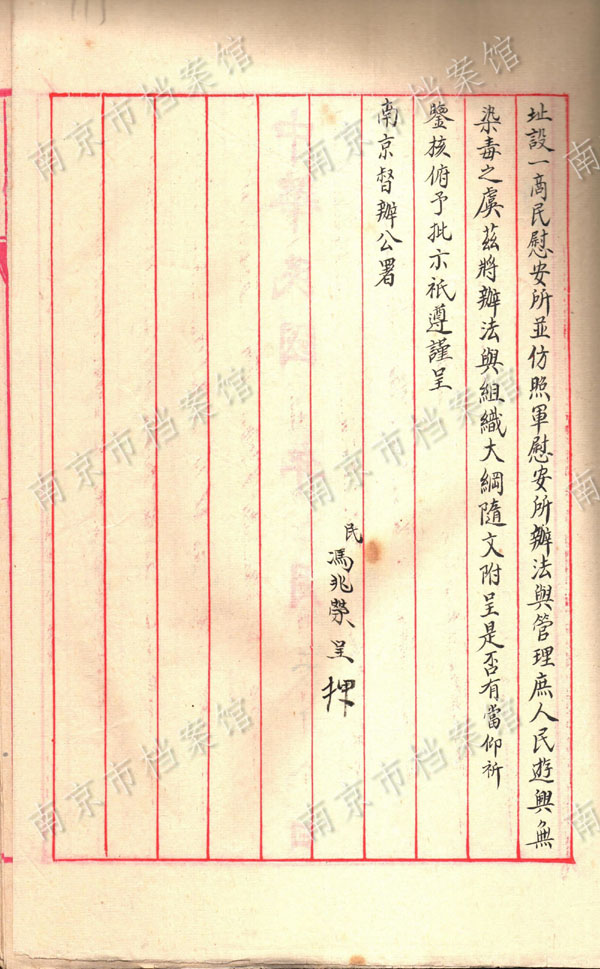 址設一商民慰安所並仿照軍慰安所辦法與管理庶人民遊興無
染毒之虞茲將辦法與組織大綱隨文附呈是否有當仰祈
鑒核俯予批示祇遵謹呈
南京督辦公署
民
馮兆榮呈押
南京市档案馆